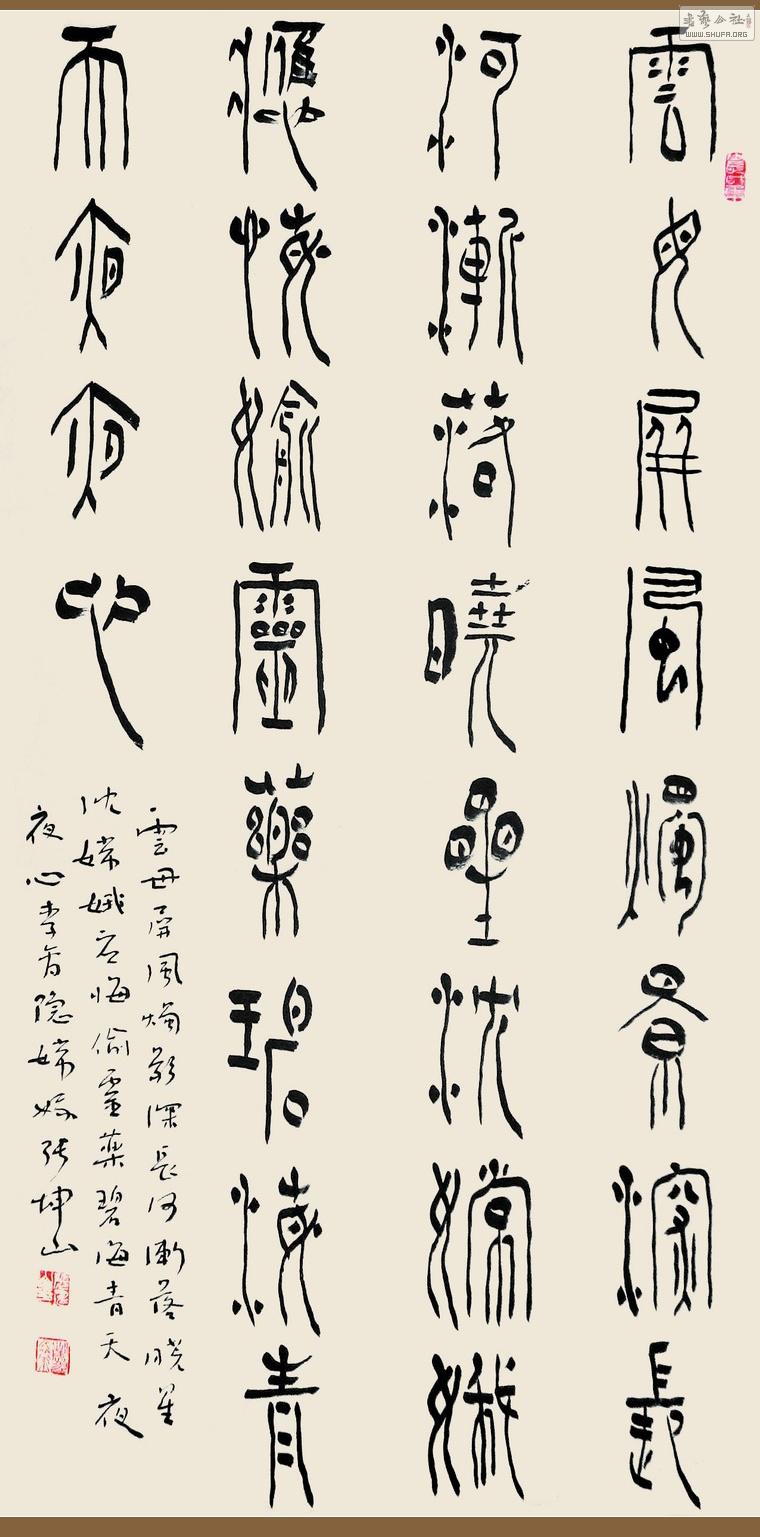 雲母屏風燭景深長
河漸落曉星沈嫦娥
應悔媮靈藥碧海青
天夜夜心
雲母屏風燭影深長河漸落曉星
沈嫦娥应悔偷靈藥碧海青天夜
夜心李商隐嫦娥張坤山
書藝公社
WWW.SHUFA.ORG